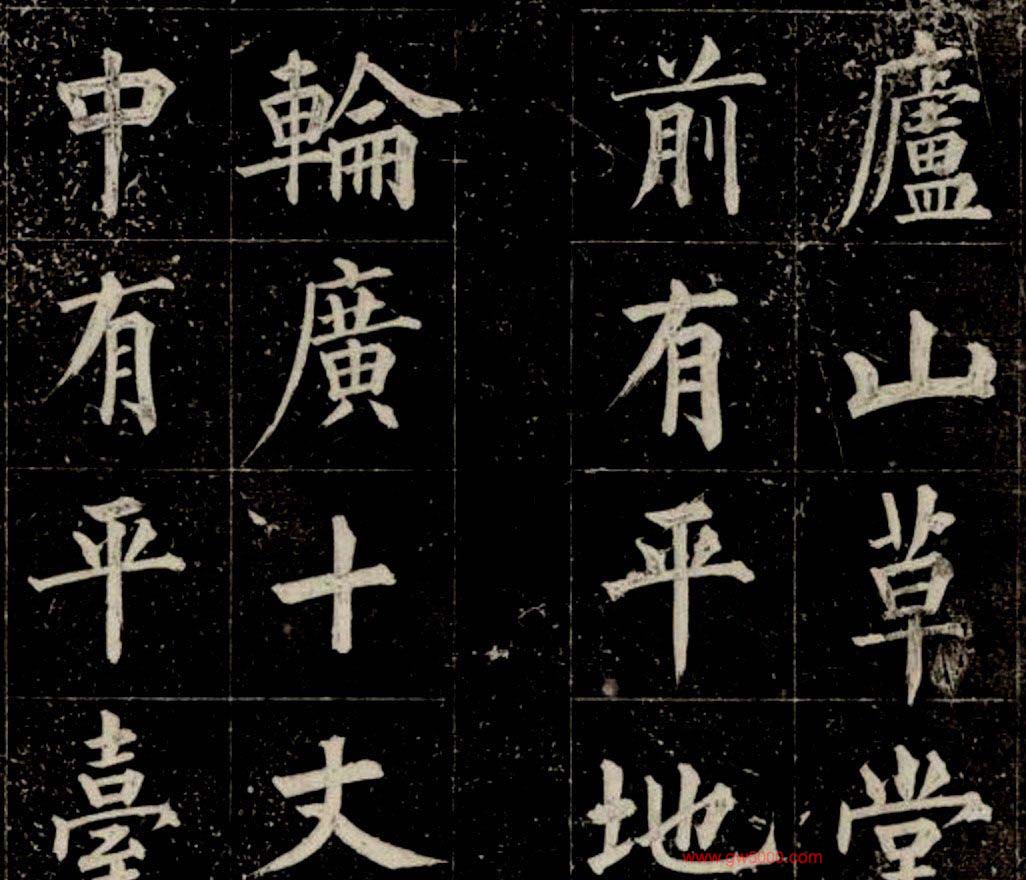 廬山草堂
前有平地
輪廣十丈
中有平臺
www.gw5000.com